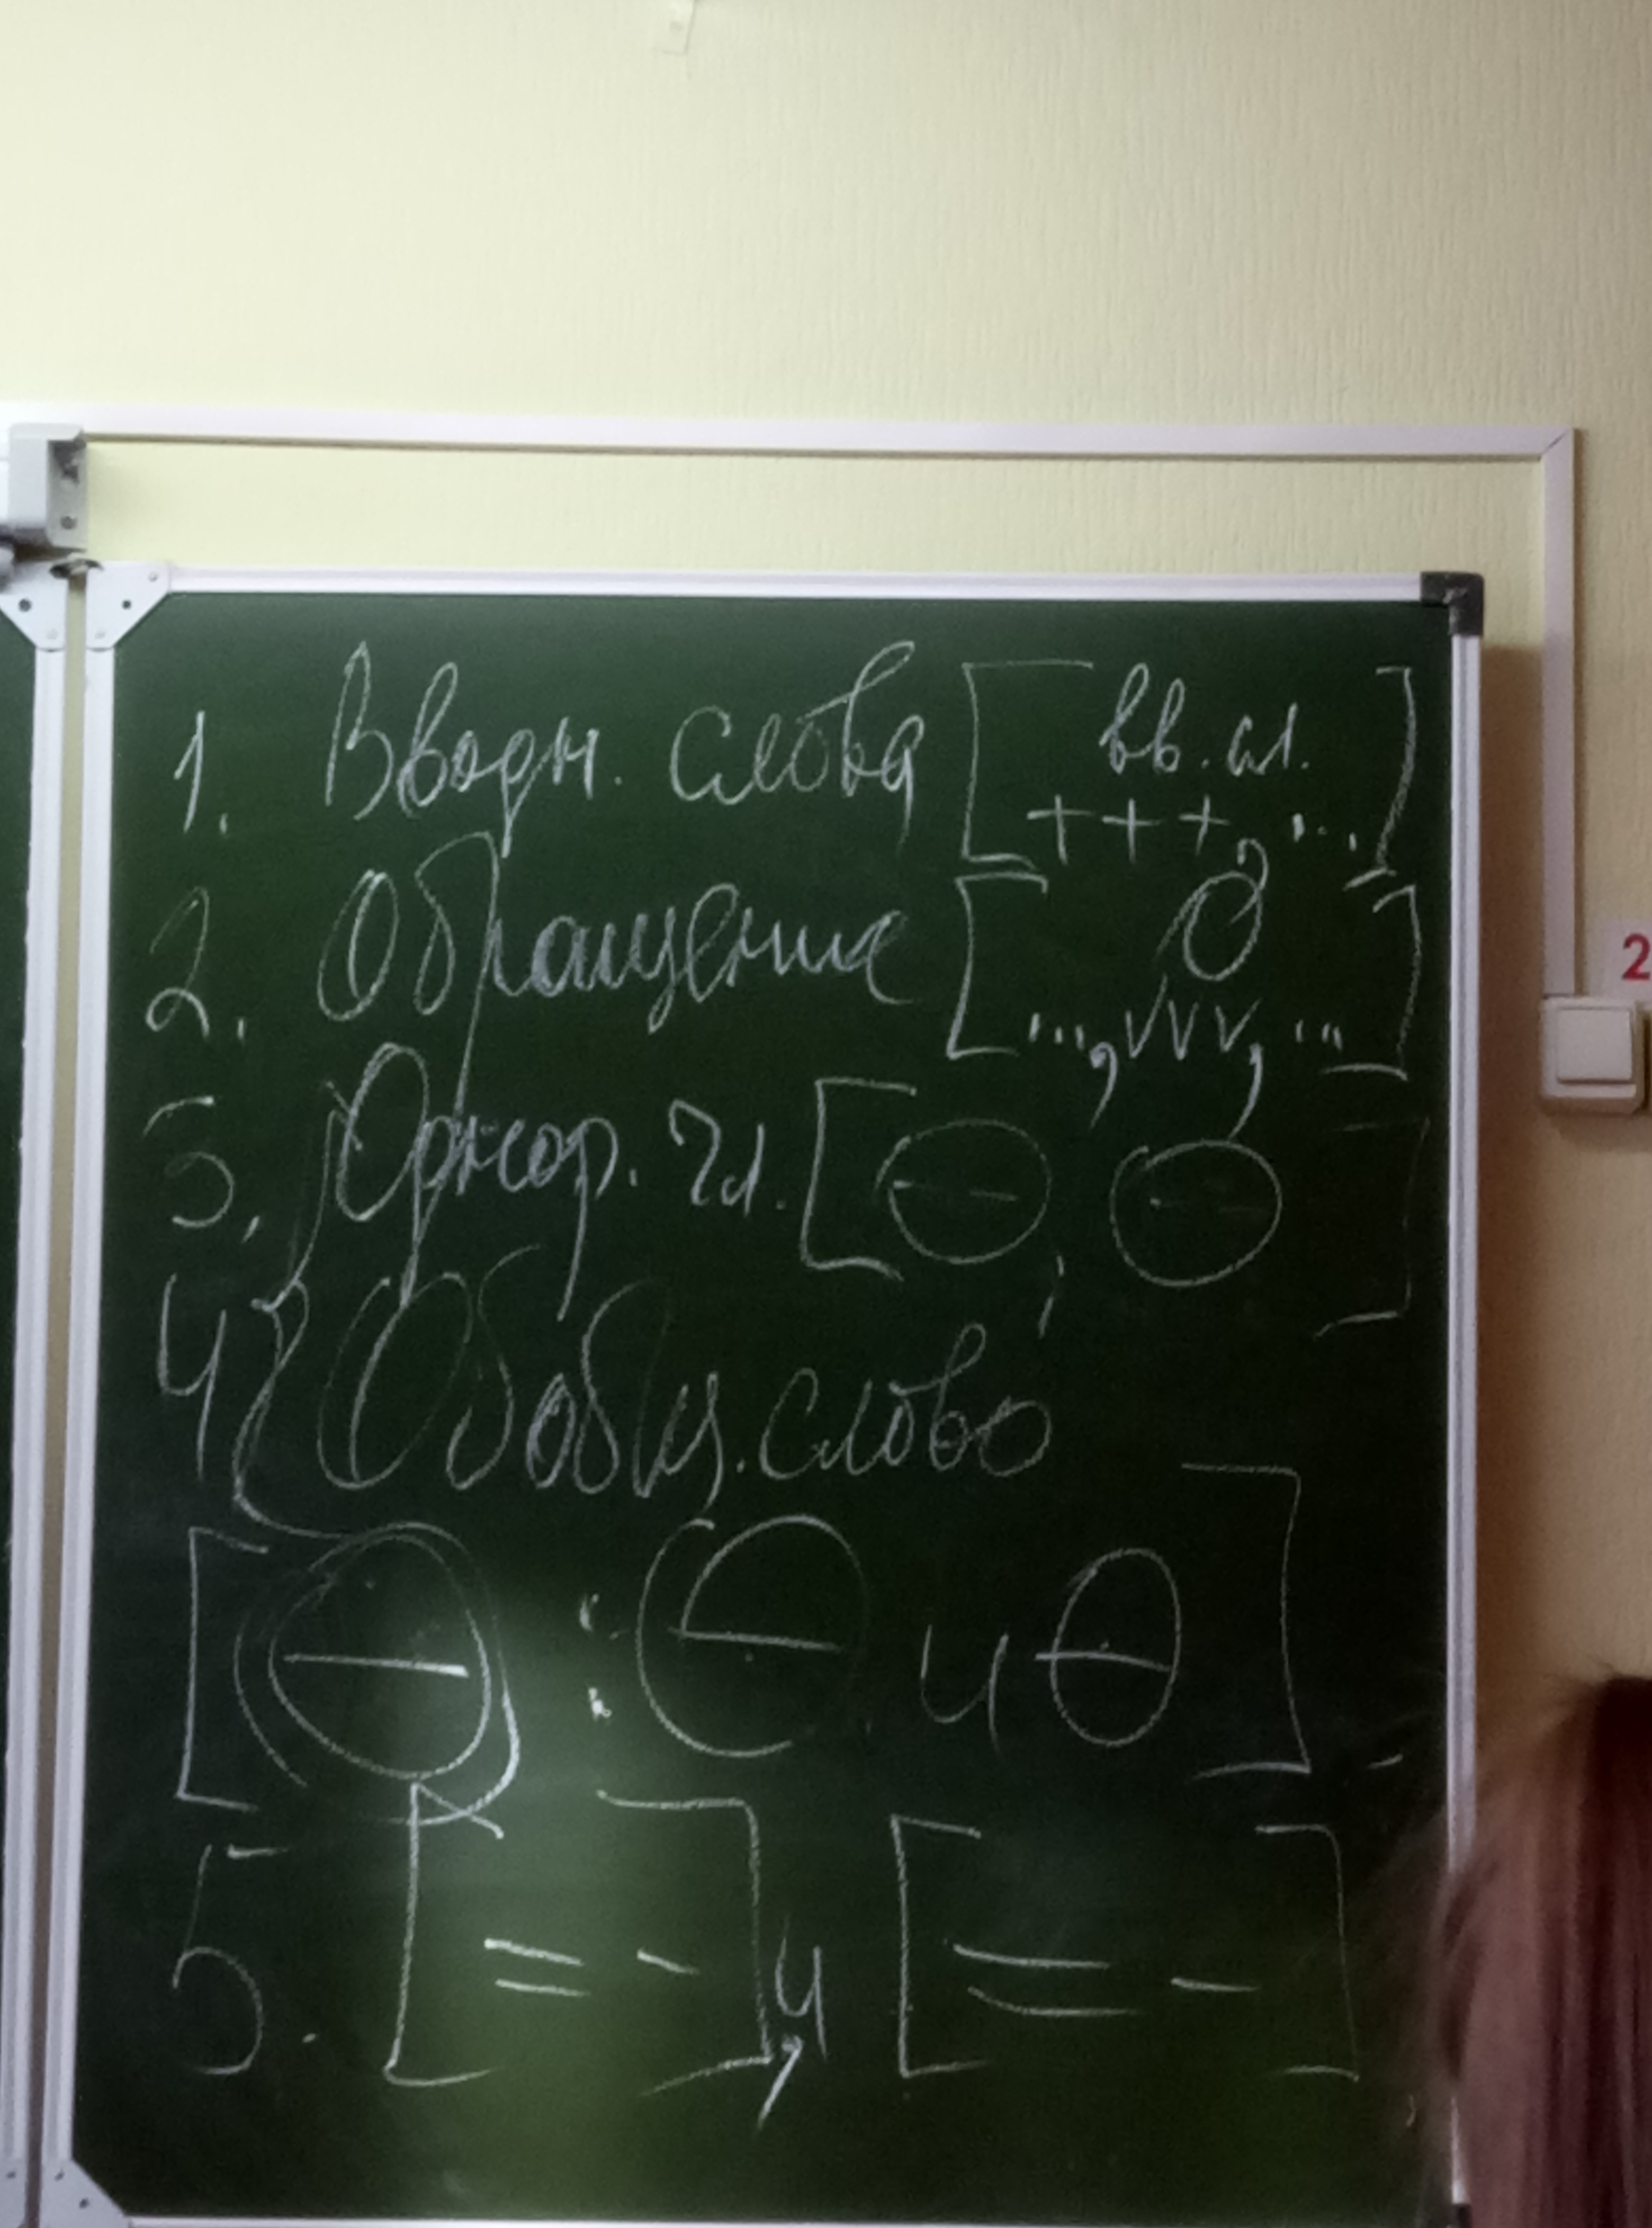 1. Вводн. слова [вв. сл. +++, ...]
2. Обращение [..., О, ...]
3. Однор. чл. [ , ]
4 Обобщ. слово
[ : и ].
5. [= -], и [= -]
2